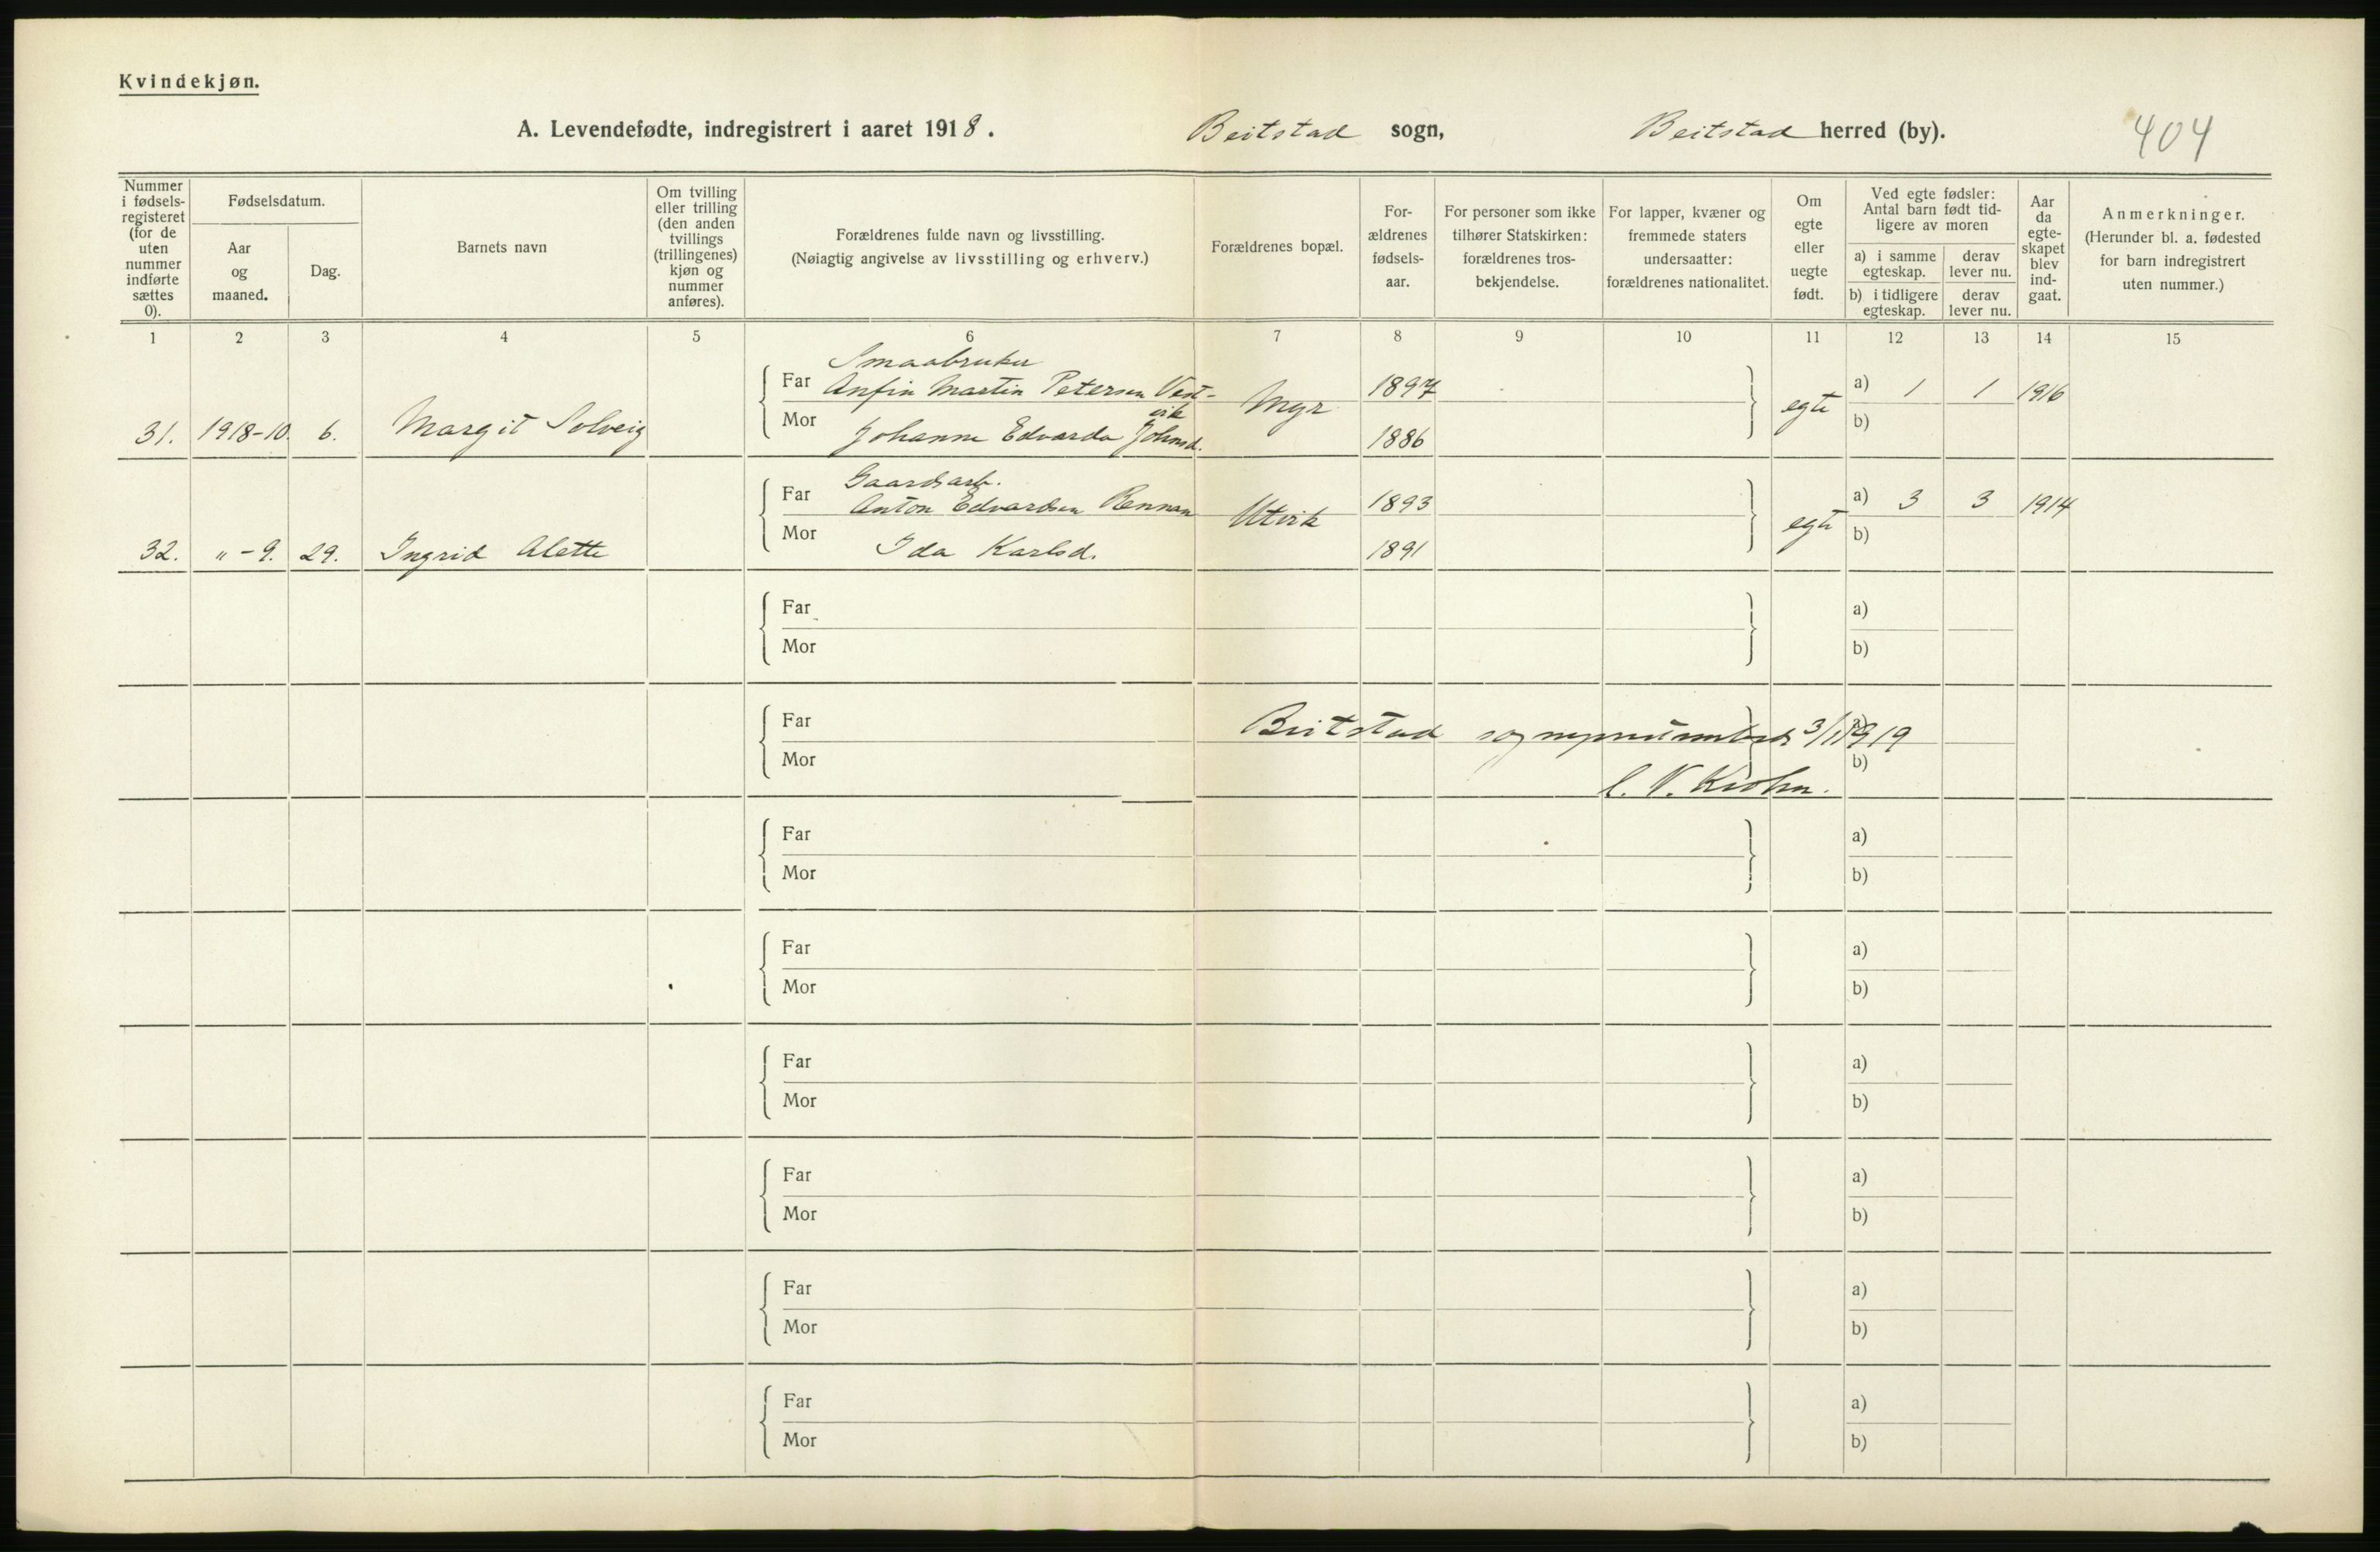 Kvindekjøn.
A. Levendefødte, indregistrert i aaret 1918. Beitstad sogn, Beitstad herred (by). 404
Nummer i fødsels-registeret (for de uten nummer indførte sættes 0).
Fødselsdatum.
Aar og maaned.
Dag.
Barnets navn
Om tvilling eller trilling (den anden tvillings (trillingenes) kjøn og nummer anføres).
Forældrenes fulde navn og livsstilling.
(Nøiagtig angivelse av livsstilling og erhverv.)
Forældrenes bopæl.
For-ældrenes fødsels-aar.
For personer som ikke tilhører Statskirken: forældrenes tros-bekjendelse.
For lapper, kvæner og fremmede staters undersaatter: forældrenes nationalitet.
Om egte eller uegte født.
Ved egte fødsler: Antal barn født tid-ligere av moren
a) i samme egteskap.
derav lever nu.
b) i tidligere egteskap.
derav lever nu.
Aar da egte-skapet blev ind-gaat.
Anmerkninger.
(Herunder bl. a. fødested for barn indregistrert uten nummer.)
1 2 3 4 5 6 7 8 9 10 11 12 13 14 15
Smaabruker
Far Anfin Martin Petersen Vest- 1897 a) 1 1 1916
vik
31. 1918-10. 6. Margit Solveig Mor Johanne Edvarda Johnsd. Myr 1886 egte b)
Gaardsarb.
Far Anton Edvardsen Rennan 1893 a) 3 3 1914
32. " - 9. 29. Ingrid Alette Mor Ida Karlsd. Utvik 1891 egte b)
Far a)
Mor b)
Far Beitstad 3/1 1919
Mor b)
C. V. Krohn.
Far a)
Mor b)
Far a)
Mor b)
Far a)
Mor b)
Far a)
Mor b)
Far a)
Mor b)
Far a)
Mor b)